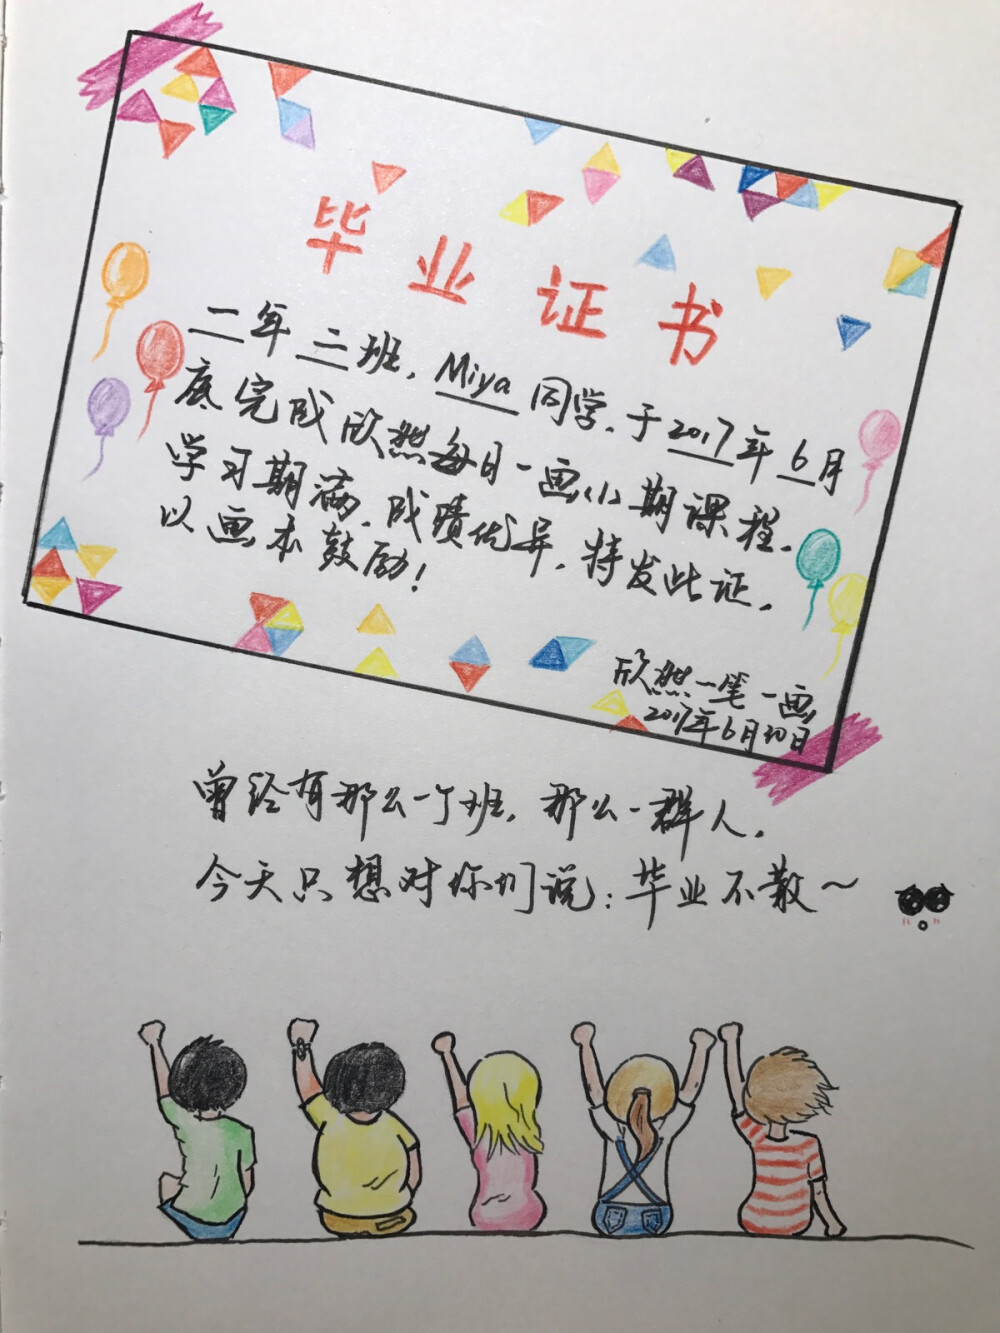 毕业证书
二年二班，Miya同学，于2017年6月
底完成欣然每日一画小期课程，
学习期满，成绩优异，特发此证，
以画本鼓励！
欣然一笔一画
2017年6月30日
曾经有那么一个班，那么一群人，
今天只想对你们说：毕业不散～